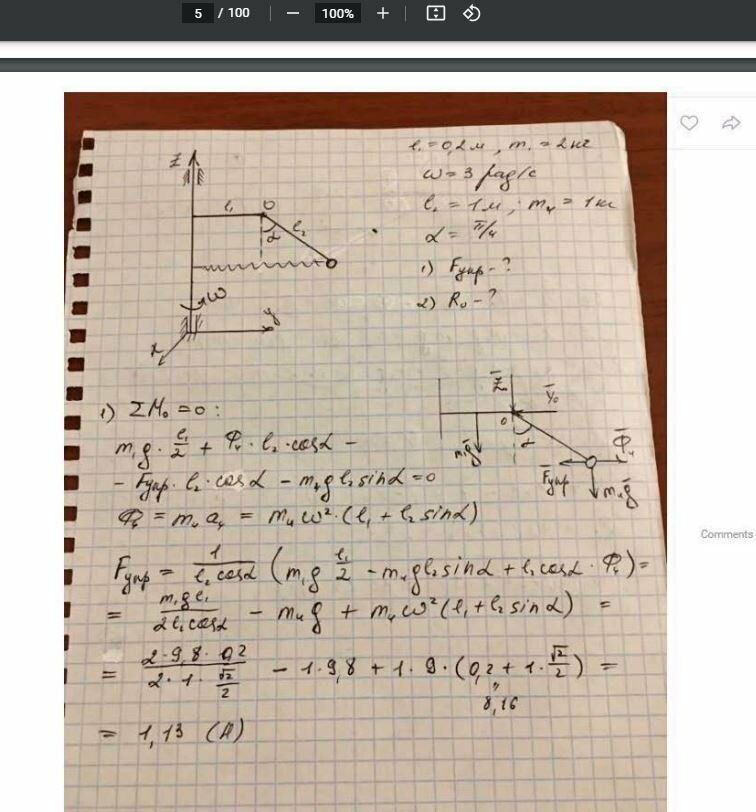 5 / 100 — 100% +
l₁ = 0,2 м, m₁ = 2 кг
ω = 3 рад/с
l₂ = 1 м; m₄ = 1 кг
α = π/4
1) Fупр - ?
2) R₀ - ?
z
l₁ O
α l₂
ω
y
x
1) ΣM₀ = 0 :
m₁g · l₁/2 + Φ₄ · l₂ · cosα -
- Fупр · l₂ · cosα - m₄gl₂sinα = 0
Φ₄ = m₄a₄ = m₄ω² · (l₁ + l₂ sinα)
Z̄₀
Ȳ₀
O
α
m₁ḡ
Φ̄₄
F̄упр
m₄ḡ
Comments
Fупр = 1/(l₂cosα) (m₁g l₁/2 - m₄gl₂sinα + l₂cosα · Φ₄) =
= m₁gl₁/(2l₂cosα) - m₄g + m₄ω²(l₁ + l₂ sinα) =
= 2·9,8·0,2/(2·1·√2/2) - 1·9,8 + 1·9·(0,2 + 1·√2/2) =
8,16
= 1,13 (Н)